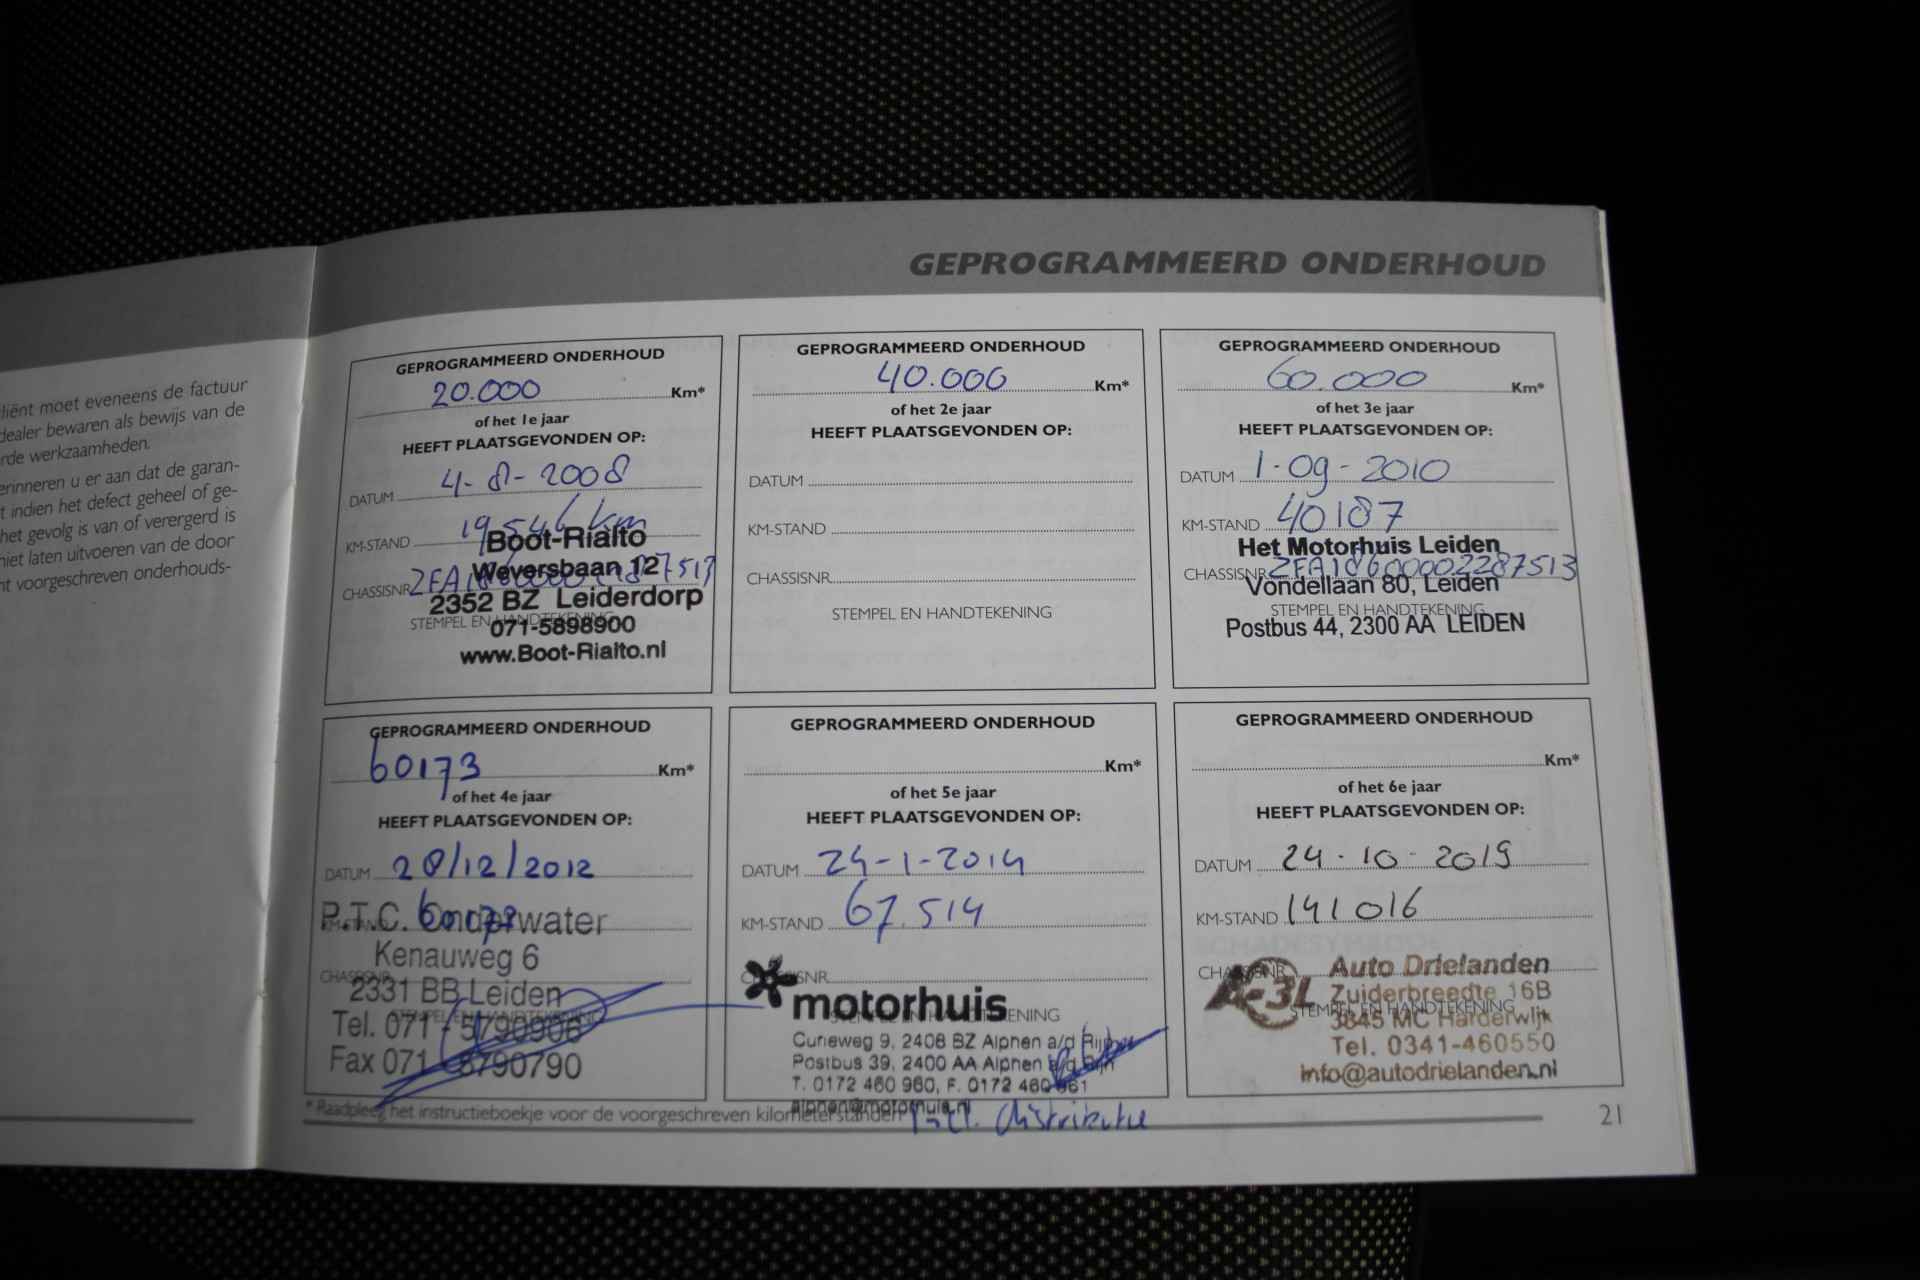 GEPROGRAMMEERD ONDERHOUD
cliënt moet eveneens de factuur
dealer bewaren als bewijs van de
rde werkzaamheden.
erinneren u er aan dat de garan-
t indien het defect geheel of ge-
het gevolg is van of verergerd is
niet laten uitvoeren van de door
nt voorgeschreven onderhouds-
GEPROGRAMMEERD ONDERHOUD
20.000 Km*
of het 1e jaar
HEEFT PLAATSGEVONDEN OP:
DATUM 4-8-2008
KM-STAND 19.546 km
Boot-Rialto
Weversbaan 12
CHASSISNR. ZFA18600002287513
2352 BZ Leiderdorp
STEMPEL EN HANDTEKENING
071-5898900
www.Boot-Rialto.nl
GEPROGRAMMEERD ONDERHOUD
40.000 Km*
of het 2e jaar
HEEFT PLAATSGEVONDEN OP:
DATUM
KM-STAND
CHASSISNR.
STEMPEL EN HANDTEKENING
GEPROGRAMMEERD ONDERHOUD
60.000 Km*
of het 3e jaar
HEEFT PLAATSGEVONDEN OP:
DATUM 1-09-2010
KM-STAND 40187
Het Motorhuis Leiden
CHASSISNR. ZFA18600002287513
Vondellaan 80, Leiden
STEMPEL EN HANDTEKENING
Postbus 44, 2300 AA LEIDEN
GEPROGRAMMEERD ONDERHOUD
60173 Km*
of het 4e jaar
HEEFT PLAATSGEVONDEN OP:
DATUM 28/12/2012
KM-STAND
P.T.C. Onderwater
Kenauweg 6
CHASSISNR.
2331 BB Leiden
STEMPEL EN HANDTEKENING
Tel. 071 - 5790906
Fax 071 - 5790790
GEPROGRAMMEERD ONDERHOUD
Km*
of het 5e jaar
HEEFT PLAATSGEVONDEN OP:
DATUM 24-1-2014
KM-STAND 67.514
CHASSISNR.
motorhuis
STEMPEL EN HANDTEKENING
Curieweg 9, 2408 BZ Alphen a/d Rijn
Postbus 39, 2400 AA Alphen a/d Rijn
T. 0172 460 960, F. 0172 460 961
alphen@motorhuis.nl
incl. distributie
GEPROGRAMMEERD ONDERHOUD
Km*
of het 6e jaar
HEEFT PLAATSGEVONDEN OP:
DATUM 24-10-2019
KM-STAND 141016
CHASSISNR.
A-3L Auto Drielanden
Zuiderbreedte 16B
STEMPEL EN HANDTEKENING
3845 MC Harderwijk
Tel. 0341-460550
info@autodrielanden.nl
* Raadpleeg het instructieboekje voor de voorgeschreven kilometerstanden
21